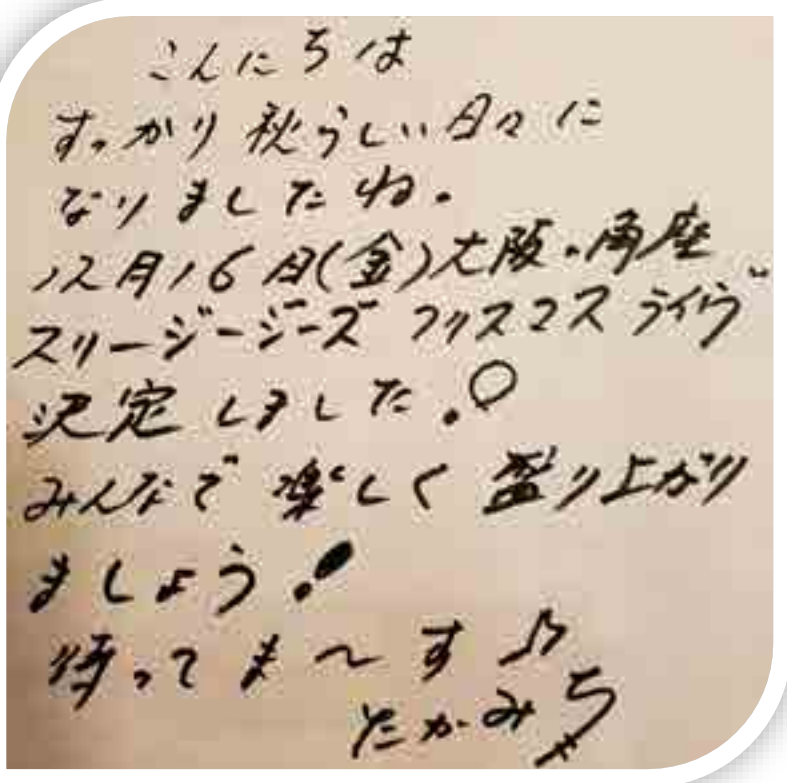 こんにちは
すっかり秋らしい日々に
なりましたね。
12月16日(金)大阪・角座
スリージージーズ クリスマス ライヴ
決定しました!
みんなで 楽しく 盛り上がり
ましょう!
待ってま〜す♪
たかみち